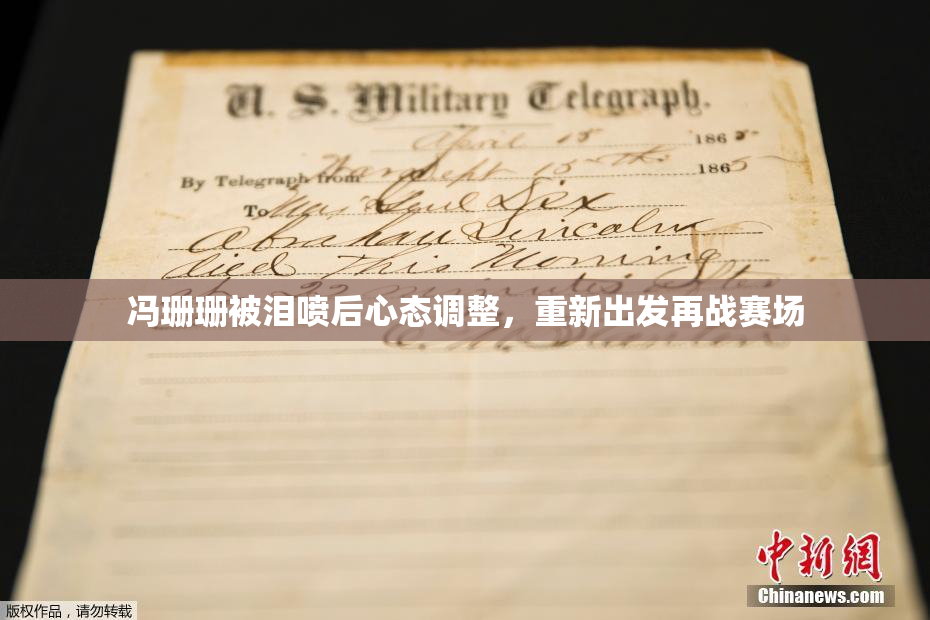 U. S. Military Telegraph.
April 15 1865
By Telegraph from War Dept 15th 1865
To Maj Genl Dix
Abraham Lincoln
died This Morning
at 22 minutes after
冯珊珊被泪喷后心态调整，重新出发再战赛场
E. M. Stanton
中新網
Chinanews.com
版权作品，请勿转载